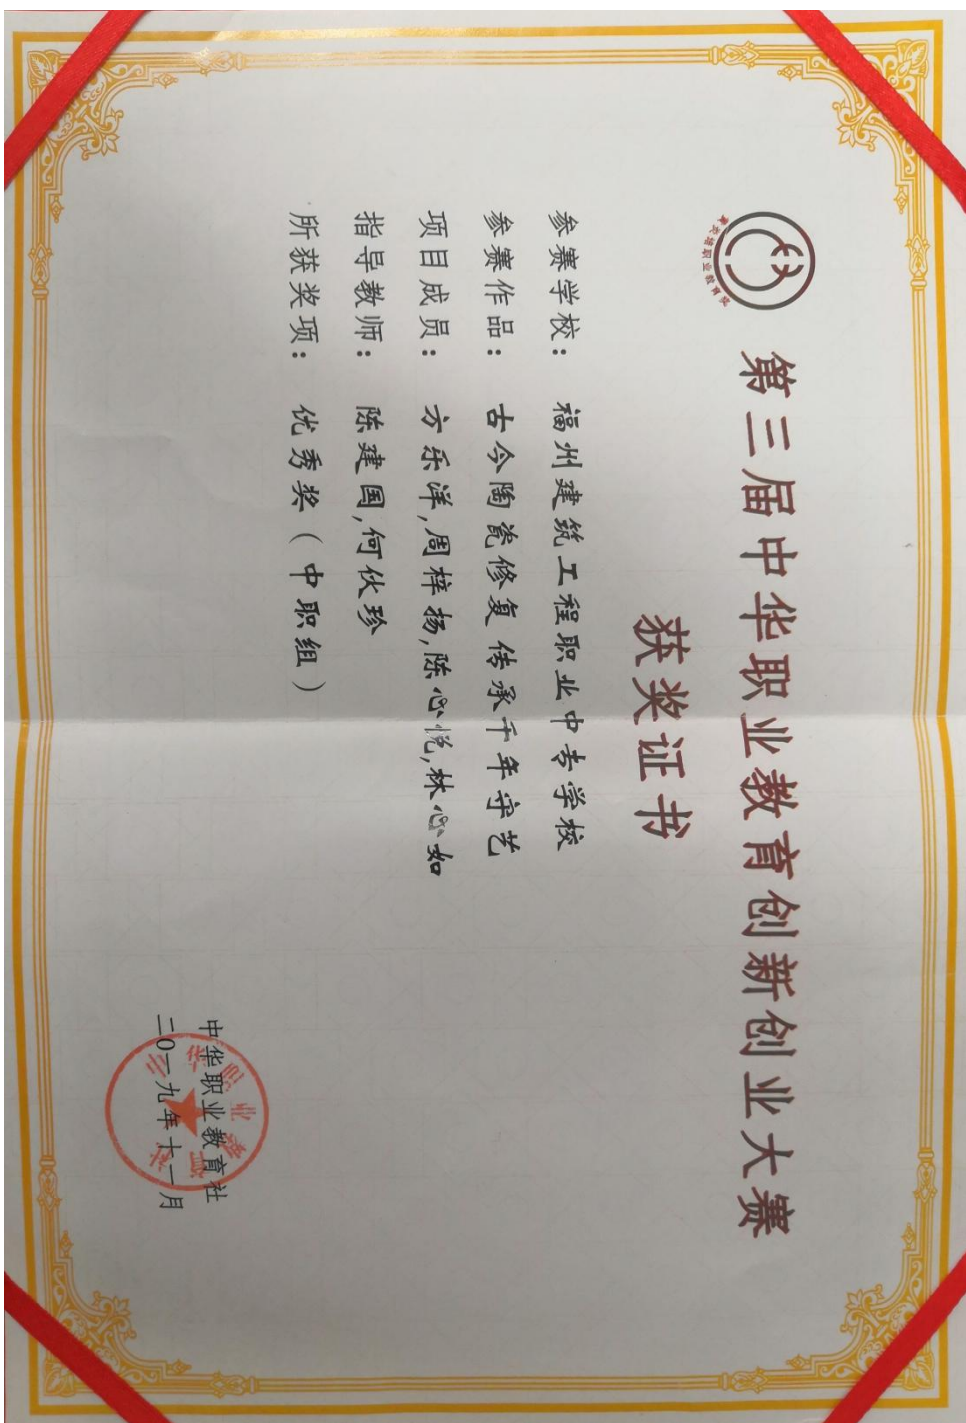 第三届中华职业教育创新创业大赛
获奖证书
参赛学校：福州建筑工程职业中专学校
参赛作品：古今陶瓷修复 传承千年守艺
项目成员：方乐洋,周梓扬,陈心悦,林心如
指导教师：陈建国,何伙珍
所获奖项：优秀奖（中职组）
中华职业教育社
二0一九年十一月